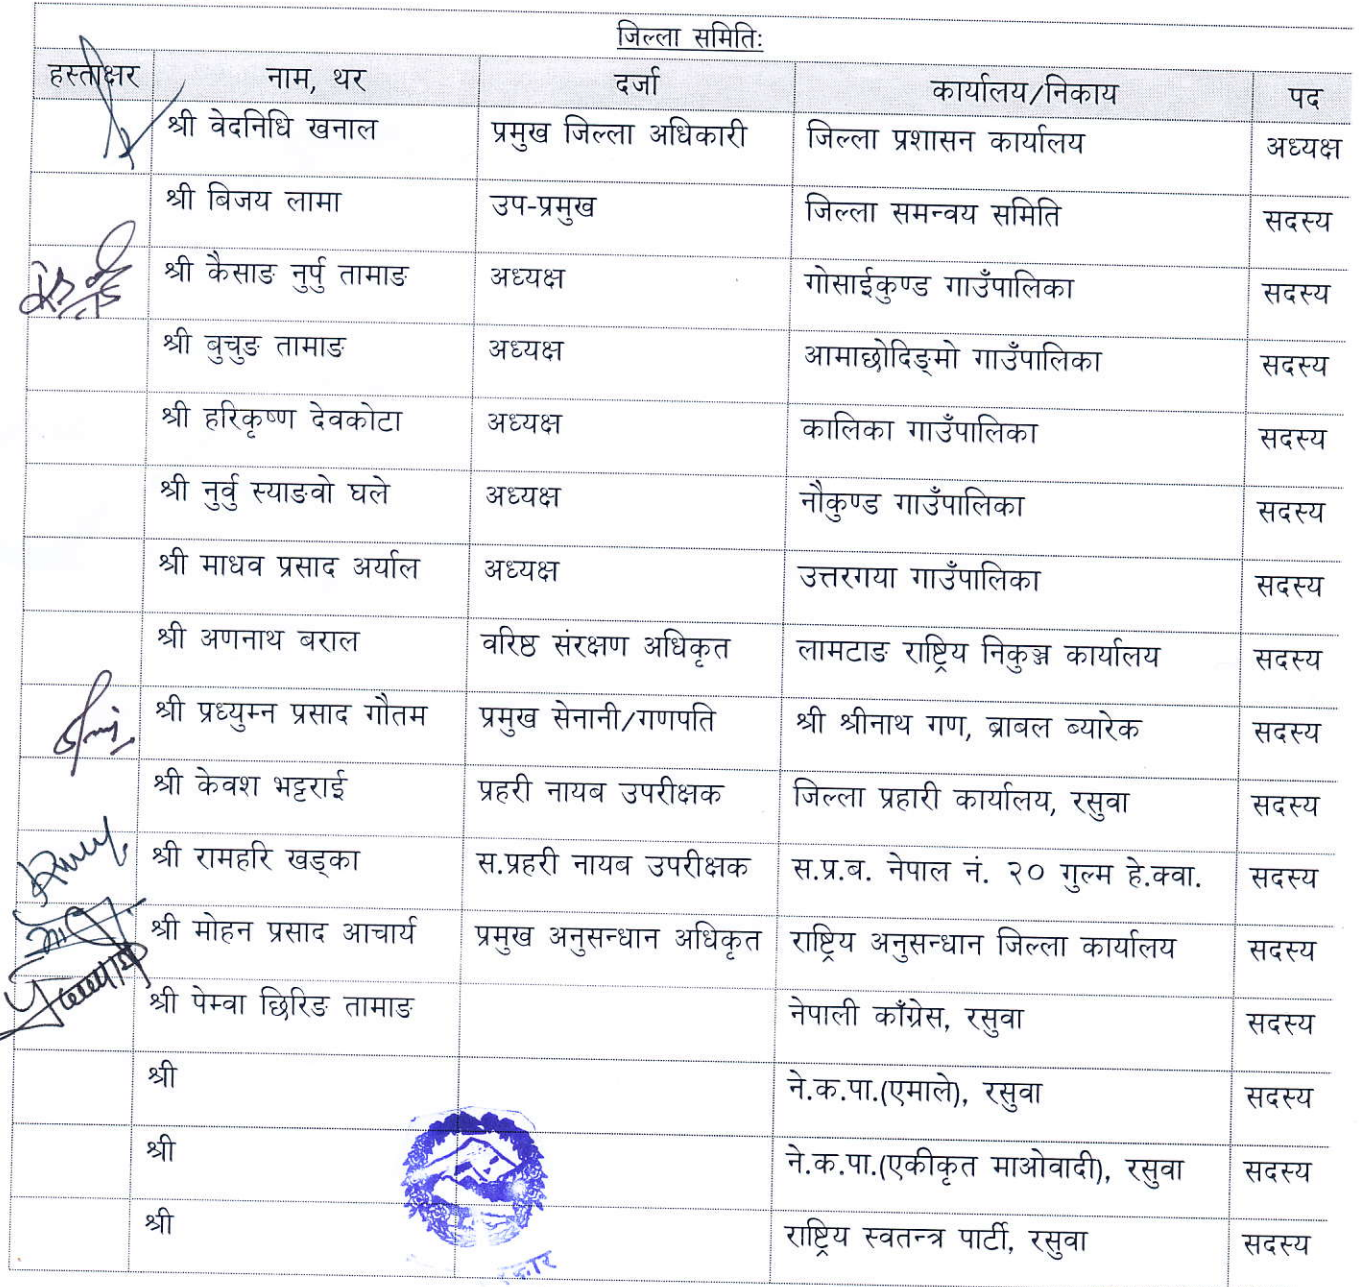 जिल्ला समितिः
हस्ताक्षर नाम, थर दर्जा कार्यालय/निकाय पद
श्री वेदनिधि खनाल प्रमुख जिल्ला अधिकारी जिल्ला प्रशासन कार्यालय अध्यक्ष
श्री बिजय लामा उप-प्रमुख जिल्ला समन्वय समिति सदस्य
श्री कैसाङ नुर्पु तामाङ अध्यक्ष गोसाईकुण्ड गाउँपालिका सदस्य
श्री बुचुङ तामाङ अध्यक्ष आमाछोदिङ्मो गाउँपालिका सदस्य
श्री हरिकृष्ण देवकोटा अध्यक्ष कालिका गाउँपालिका सदस्य
श्री नुर्वु स्याङवो घले अध्यक्ष नौकुण्ड गाउँपालिका सदस्य
श्री माधव प्रसाद अर्याल अध्यक्ष उत्तरगया गाउँपालिका सदस्य
श्री अणनाथ बराल वरिष्ठ संरक्षण अधिकृत लामटाङ राष्ट्रिय निकुञ्ज कार्यालय सदस्य
श्री प्रध्युम्न प्रसाद गौतम प्रमुख सेनानी/गणपति श्री श्रीनाथ गण, ब्राबल ब्यारेक सदस्य
श्री केवश भट्टराई प्रहरी नायब उपरीक्षक जिल्ला प्रहारी कार्यालय, रसुवा सदस्य
श्री रामहरि खड्का स.प्रहरी नायब उपरीक्षक स.प्र.ब. नेपाल नं. २० गुल्म हे.क्वा. सदस्य
श्री मोहन प्रसाद आचार्य प्रमुख अनुसन्धान अधिकृत राष्ट्रिय अनुसन्धान जिल्ला कार्यालय सदस्य
श्री पेम्वा छिरिङ तामाङ नेपाली काँग्रेस, रसुवा सदस्य
श्री ने.क.पा.(एमाले), रसुवा सदस्य
श्री ने.क.पा.(एकीकृत माओवादी), रसुवा सदस्य
श्री राष्ट्रिय स्वतन्त्र पार्टी, रसुवा सदस्य